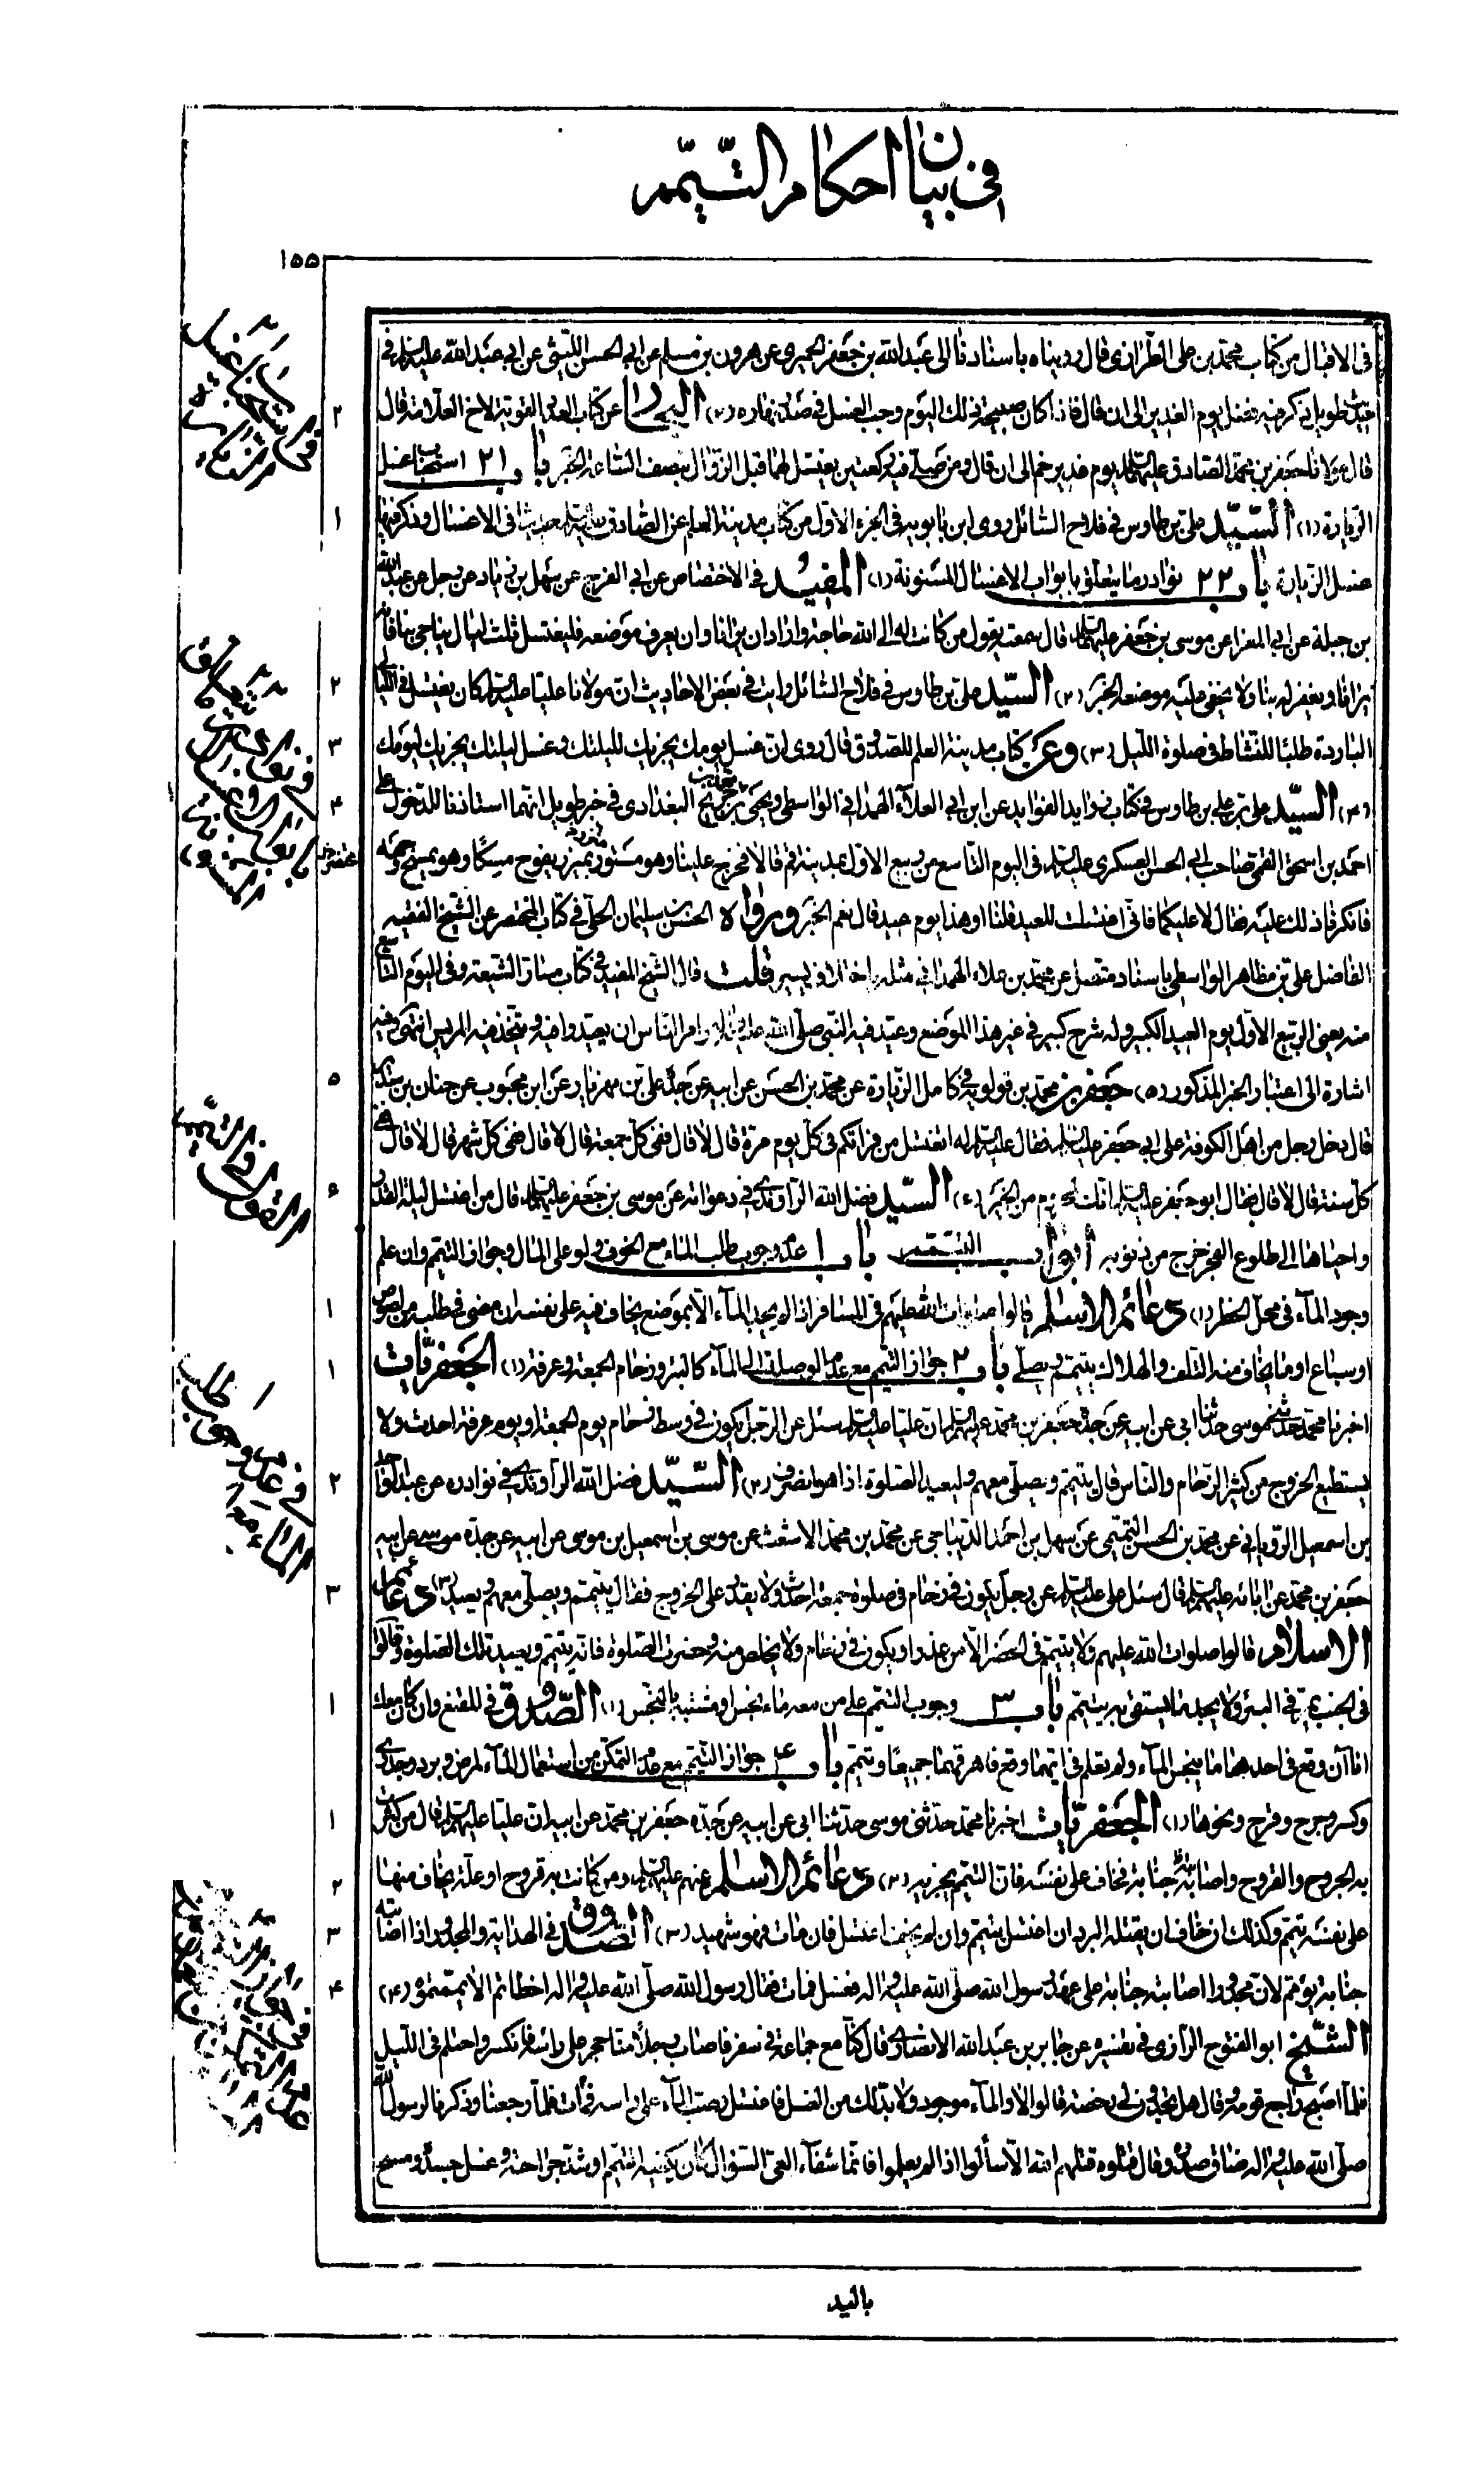 في بيان احكام التيمم
١٥٥
في الاقبال من كتاب محمد بن علي الطرازي قال رويناه باسناد قال الى عبد الله بن جعفر الحميري عن هرون بن مسلم عن ابي الحسن الليثي عن ابي عبد الله عليه السلام في
حديث طويل ذكر فيه فضل يوم الغدير الى ان قال فاذا كان صبيحة ذلك اليوم وجب الغسل في صدر نهاره (٢) البحار عن كتاب العدد القوية لاخ العلامة قال
قال مولانا جعفر بن محمد الصادق عليهما السلام يوم غدير خم الى ان قال ومن صلى فيه ركعتين يغتسل لهما قبل الزوال بنصف الساعة الخبر باب ٢١ استحباب غسل
الزيارة (١) السيد علي بن طاوس في فلاح السائل روى ابن بابويه في الجزء الاول من كتاب مدينة العلم عن الصادق عليه السلام حديثا في الاغسال وذكر فيها
غسل الزيارة باب ٢٢ نوادر ما يتعلق بابواب الاغسال المسنونة (١) المفيد في الاختصاص عن ابي الفرج عن سهل بن زياد عن رجل عن عبد الله
بن جبلة عن ابي المغرا عن موسى بن جعفر عليهما السلام قال سمعته يقول من كانت له الى الله حاجة واراد ان يرانا وان يعرف موضعه فليغتسل ثلث ليال يناجي بنا فانه
يرانا ويغفر له بنا ولا يخفى عليه موضعه الخبر (٢) السيد علي بن طاوس في فلاح السائل رايت في بعض الاحاديث ان مولانا عليا عليه السلام كان يغتسل في الليالي
الباردة طلبا للنشاط في صلوة الليل (٣) وعن كتاب مدينة العلم للصدوق قال روى ان غسل يومك يجزيك لليلتك وغسل ليلتك يجزيك ليومك
(٤) السيد علي بن علي بن طاوس في كتاب زوايد الفوايد عن ابن ابي العلاء الهمداني الواسطي ويحيى بن محمد بن جريح البغدادي في خبر طويل انهما استاذنا للدخول على
احمد بن اسحق القمي صاحب ابي الحسن العسكري عليه السلام في اليوم التاسع من ربيع الاول بمدينة قم قالا فخرج علينا وهو مستور بميزر يفوح مسكا وهو يمسح وجهه
فانكرنا ذلك عليه فقال لا عليكما فاني اغتسلت للعيد قلنا اوهذا يوم عيد قال نعم الخبر ورواه الحسن بن سليمان الحلي في كتاب المحتضر عن الشيخ الفقيه
الفاضل علي بن مظاهر الواسطي باسناد متصل عن محمد بن علاء الهمداني مثله باختلاف يسير قلت قال الشيخ المفيد في كتاب مسار الشيعة وفي اليوم التاسع
منه يعني الربيع الاول يوم العيد الكبير وله شرح كبير في غير هذا الموضع وعيد فيه النبي صلى الله عليه واله وامر الناس ان يعيدوا فيه ويتخذ فيه المريس انتهى وفيه
اشارة الى اعتبار الخبر المذكور (٥) جعفر بن محمد بن قولويه في كامل الزيارة عن محمد بن الحسن عن ابيه عن جده علي بن مهزيار عن ابن محبوب عن حنان بن سدير
قال دخل رجل من اهل الكوفة على ابي جعفر عليه السلام فقال عليه السلام له اتغتسل من فراتكم في كل يوم مرة قال لا قال ففي كل جمعة قال لا قال ففي كل شهر قال لا قال ففي
كل سنة قال لا فقال ابو جعفر عليه السلام انك لمحروم من الخير (٦) السيد فضل الله الراوندي في دعواته عن موسى بن جعفر عليهما السلام قال من اغتسل ليلة القدر
واحياها الى طلوع الفجر خرج من ذنوبه ابواب التيمم باب ١ عدم وجوب طلب الماء مع الخوف ولو على المال وجواز التيمم وان علم
وجود الماء في محل الخطر (١) دعائم الاسلام قالوا صلوات الله عليهم في المسافر اذا لم يجد الماء الا بموضع يخاف فيه على نفسه ان مضى في طلبه من لصوص
او سباع او ما يخاف منه التلف والهلاك يتيمم ويصلي باب ٢ جواز التيمم مع عدم الوصلة الى الماء كالبئر وزحام الجمعة وعرفة (١) الجعفريات
اخبرنا محمد حدثني موسى حدثنا ابي عن ابيه عن جده جعفر بن محمد عليهم السلام ان عليا عليه السلام سئل عن الرجل يكون في وسط زحام يوم الجمعة او يوم عرفة احدث ولا
يستطيع الخروج من كثرة الزحام والناس قال يتيمم ويصلي معهم وليعيد الصلوة اذا هو انصرف (٢) السيد فضل الله الراوندي في نوادره عن عبد الواحد
بن اسمعيل الروياني عن محمد بن الحسن التميمي عن سهل بن احمد الديباجي عن محمد بن محمد الاشعث عن موسى بن اسمعيل بن موسى عن ابيه عن جده موسى عن ابيه
جعفر بن محمد عن ابائه عليهم السلام قال سئل علي عليه السلام عن رجل يكون في زحام في صلوة جمعة احدث ولا يقدر على الخروج فقال يتيمم ويصلي معهم ويعيد (٣) دعائم
الاسلام قالوا صلوات الله عليهم ولا يتيمم في الحضر الا من عذر او يكون في زحام ولا يخلص منه وحضرت الصلوة فانه يتيمم ويعيد تلك الصلوة وقالوا
في الجنب يمر في البئر ولا يجد ما يستقى به يتيمم باب ٣ وجوب التيمم على من معه ماء نجس او مشتبه بالنجس (١) الصدوق في المقنع وان كان معك
اناآن وقع في احدهما ما ينجس الماء ولم يعلم في ايهما وقع فاهرقهما جميعا وتيمم باب ٤ جواز التيمم مع عدم التمكن من استعمال الماء لمرض وبرد وجدري
وكسر وجرح وقرح ونحوها (١) الجعفريات اخبرنا محمد حدثني موسى حدثنا ابي عن ابيه عن جده جعفر بن محمد عن ابيه ان عليا عليه السلام قال من كثرت
به الجروح والقروح واصابته جنابة فخاف على نفسه فان التيمم يجزيه (٢) دعائم الاسلام عنهم عليهم السلام ومن كانت به قروح او علة يخاف منها
على نفسه تيمم وكذلك ان خاف ان يقتله البرد ان اغتسل يتيمم وان لم يخف اغتسل فان مات فهو شهيد (٣) الصدوق في الهداية والمجدور اذا اصابته
جنابة يؤمم لان مجدورا اصابته جنابة على عهد رسول الله صلى الله عليه واله فغسل فمات فقال رسول الله صلى الله عليه واله اخطاتم الا يممتموه (٤)
الشيخ ابو الفتوح الرازي في تفسيره عن جابر بن عبد الله الانصاري قال كنا مع جماعة في سفر فاصاب رجلا منا حجر على راسه فانكسر واحتلم في الليل
فلما اصبح راجع قومه وقال هل تجدون لي رخصة قالوا لا والماء موجود ولا بد لك من الغسل فاغتسل وصب الماء على راسه فمات فلما رجعنا وذكرنا لرسول الله
صلى الله عليه واله ضاق صدره وقال قتلوه قتلهم الله الا سألوا اذا لم يعلموا فانما شفاء العي السؤال كان يكفيه التيمم او شد جراحته وغسل جسده ومسح
٢
١
٢
٣
٤
٥
٦
١
١
٢
٣
١
١
٢
٣
٤
القول في التيمم
١ في عدم وجوب طلب الماء
باليد